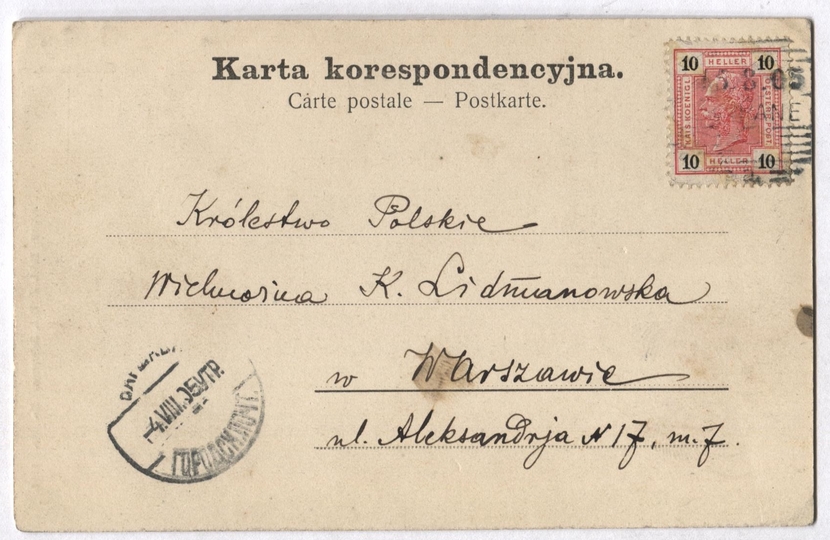 Karta korespondencyjna.
Cárte postale — Postkarte.
10 HELLER 10
KAIS. KOENIGL.
OESTERR. POST
10 HELLER 10
3 8 05
ANE
Królestwo Polskie
Wielmożna K. Lidmanowska
w Warszawie
ul. Aleksandrja N 17, m. 7.
ВАРШАВА
4.VIII.05 УТР.
ГОРОДСК.ПОЧТ.